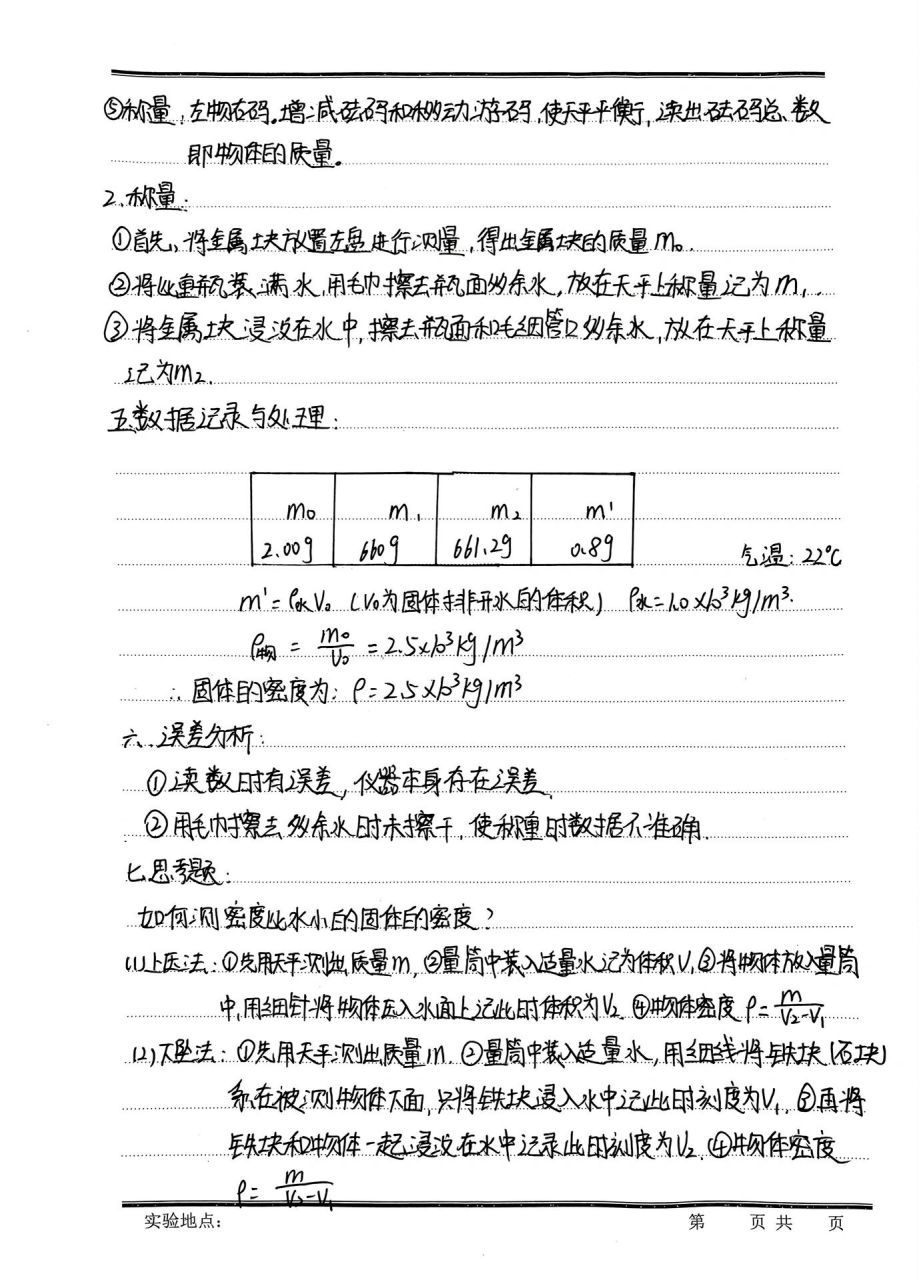 ⑤称量:左物右码。增减砝码和移动游码,使天平平衡,读出砝码总数
即物体的质量。
2.称量:
①首先、将金属块放置左盘进行测量,得出金属块的质量m₀.
②将比重瓶装满水,用毛巾擦去瓶面多余水,放在天平上称量记为m₁.
③将金属块浸没在水中,擦去瓶面和毛细管口多余水,放在天平上称量
记为m₂.
五.数据记录与处理:
m₀ m₁ m₂ m'
2.00g 660g 661.2g 0.8g 气温:22℃
m'=ρ水V₀ (V₀为固体排开水的体积) ρ水=1.0×10³kg/m³.
ρ物 = m₀/V₀ = 2.5×10³kg/m³
∴固体的密度为:ρ=2.5×10³kg/m³
六、误差分析:
①读数时有误差,仪器本身存在误差.
②用毛巾擦去多余水时未擦干,使称重时数据不准确.
七.思考题:
如何测密度比水小的固体的密度?
(1)上压法:①先用天平测出质量m,②量筒中装入适量水记为体积V₁③将物体放入量筒
中,用细针将物体压入水面上记此时体积为V₂.④物体密度ρ=m/(V₂-V₁)
(2)下坠法:①先用天平测出质量m.②量筒中装入适量水,用细线将铁块(石块)
系在被测物体下面,只将铁块浸入水中记此时刻度为V₁.③再将
铁块和物体一起浸没在水中记录此时刻度为V₂.④物体密度
ρ=m/(V₂-V₁)
实验地点: 第 页 共 页